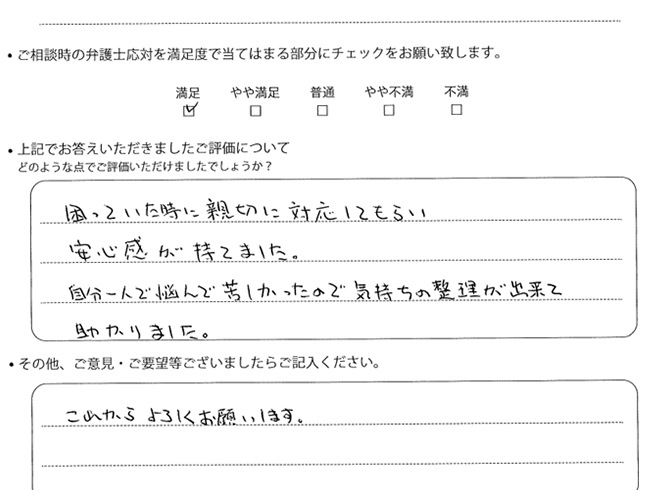 ・ご相談時の弁護士応対を満足度で当てはまる部分にチェックをお願い致します。
満足 やや満足 普通 やや不満 不満
・上記でお答えいただきましたご評価について
どのような点でご評価いただけましたでしょうか？
困っていた時に親切に対応してもらい
安心感が持てました。
自分一人で悩んで苦しかったので気持ちの整理が出来て
助かりました。
・その他、ご意見・ご要望等ございましたらご記入ください。
これからよろしくお願いします。